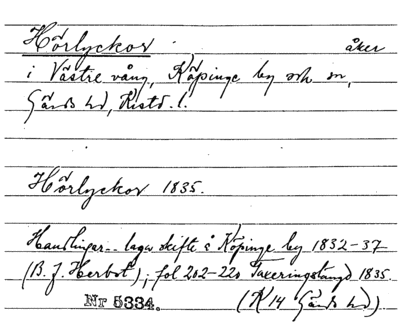 Hörlyckor åker
i Västre vång, Köpinge by och sn,
Gärds hd, Kristd. l.
Hörlyckor 1835.
Handlingar .. laga skifte å Köpinge by 1832-37
(B. J. Herbst), fol 202-220 Taxeringslängd 1835.
Nr 5334. (K 14 Gärds hd)